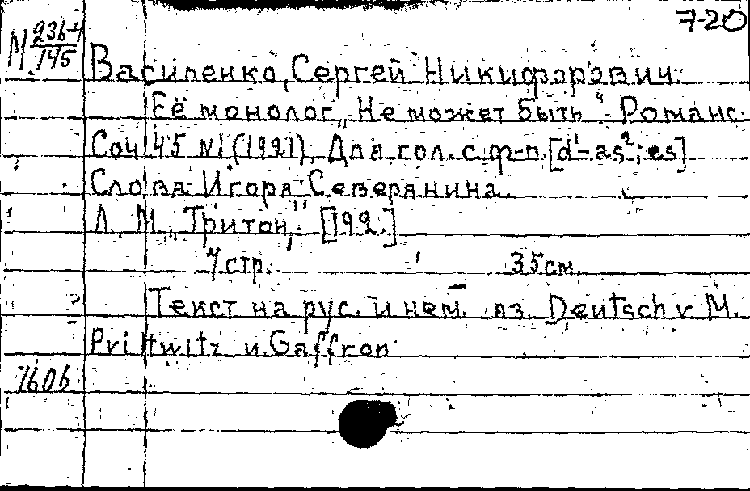 7-20
М 236-4
145
Василенко, Сергей Никифорович.
Её монолог „Не может быть". Романс.
Соч. 45 №1 (1921). Для гол. с ф-п. [d¹-as²; es]
Слова Игоря Северянина.
Л. М., „Тритон," [192.]
7 стр. 35 см.
Текст на рус. и нем. яз. Deutsch v. M.
Prittwitz u. Gaffron.
7606